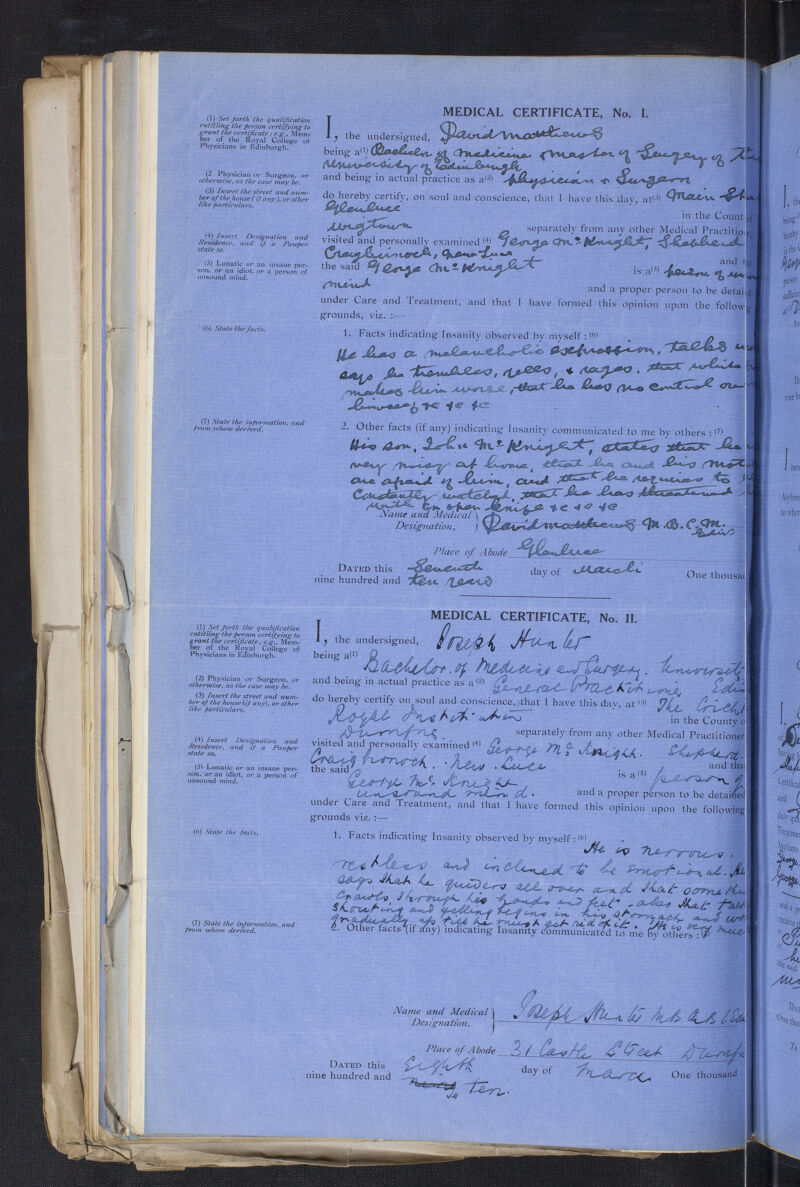 MEDICAL CERTIFICATE, No. I.
(1) Set forth the qualification
entitling the person certifying to
grant the certificate; e.g., Mem-
ber of the Royal College of
Physicians in Edinburgh.
I, the undersigned, David Matthews
being a(1) Bachelor of Medicine & Master of Surgery of
University of Edinburgh
(2 Physician or Surgeon, or
otherwise, as the case may be.
and being in actual practice as a(2) Physician & Surgeon
(3) Insert the street and num-
ber of the house (if any), or other
like particulars.
do hereby certify, on soul and conscience, that I have this day, at(3) Main
Glenluce in the Count
Wigtown separately from any other Medical Practitio
(4) Insert Designation and
Residence, and if a Pauper
state so.
visited and personally examined (4) George McKnight, Shepherd
Craighirnoch, New Luce and
(5) Lunatic or an insane per-
son, or an idiot, or a person of
unsound mind.
the said George McKnight is a(5) person of
mind and a proper person to be detai
under Care and Treatment, and that I have formed this opinion upon the follow
grounds, viz. :—
(6) State the facts.
1. Facts indicating Insanity observed by myself: (6)
He has a melancholic expression, talks
says he trembles, yells, & rages. that
makes him worse, that he has no control
himself &c &c &c
(7) State the information, and
from whom derived.
2. Other facts (if any) indicating Insanity communicated to me by others : (7)
His son, John McKnight, states that he
very noisy at home, that he and his
are afraid of him, and that he requires to
constantly watched, that he has threatened
with an open knife &c &c &c
Name and Medical
Designation, David Matthews M.B. C.M.
Edin
Place of Abode Glenluce
DATED this Seventh day of March One thousa
nine hundred and ten years
MEDICAL CERTIFICATE, No. II.
(1) Set forth the qualification
entitling the person certifying to
grant the certificate; e.g., Mem-
ber of the Royal College of
Physicians in Edinburgh.
I, the undersigned, Joseph Hunter
being a(1) Bachelor of Medicine and Surgery. University
(2) Physician or Surgeon, or
otherwise, as the case may be.
and being in actual practice as a (2) General Practitioner
(3) Insert the street and num-
ber of the house (if any), or other
like particulars.
do hereby certify on soul and conscience, that I have this day, at (3) The Cricht
Royal Institution in the County o
Dumfries separately from any other Medical Practitioner
(4) Insert Designation and
Residence, and if a Pauper
state so.
visited and personally examined (4) George McKnight. Shepherd.
Craighirnoch. New Luce and tha
(5) Lunatic or an insane per-
son, or an idiot, or a person of
unsound mind.
the said George McKnight is a (5) person of
unsound mind. and a proper person to be detained
under Care and Treatment, and that I have formed this opinion upon the following
grounds viz. :—
(6) State the facts,
1. Facts indicating Insanity observed by myself: (6)
He is nervous.
restless and inclined to be emotional. He
says that he quivers all over and that
crawls through his hands and feet - also that
shouting and yelling begins in his stomach and
gradually up till he must get rid of it. He is very
(7) State the information, and
from whom derived.
2. Other facts (if any) indicating Insanity communicated to me by others : (7)
Name and Medical
Designation. Joseph Hunter
Place of Abode 31 Castle Street
DATED this Eighth day of March One thousand
nine hundred and ten.